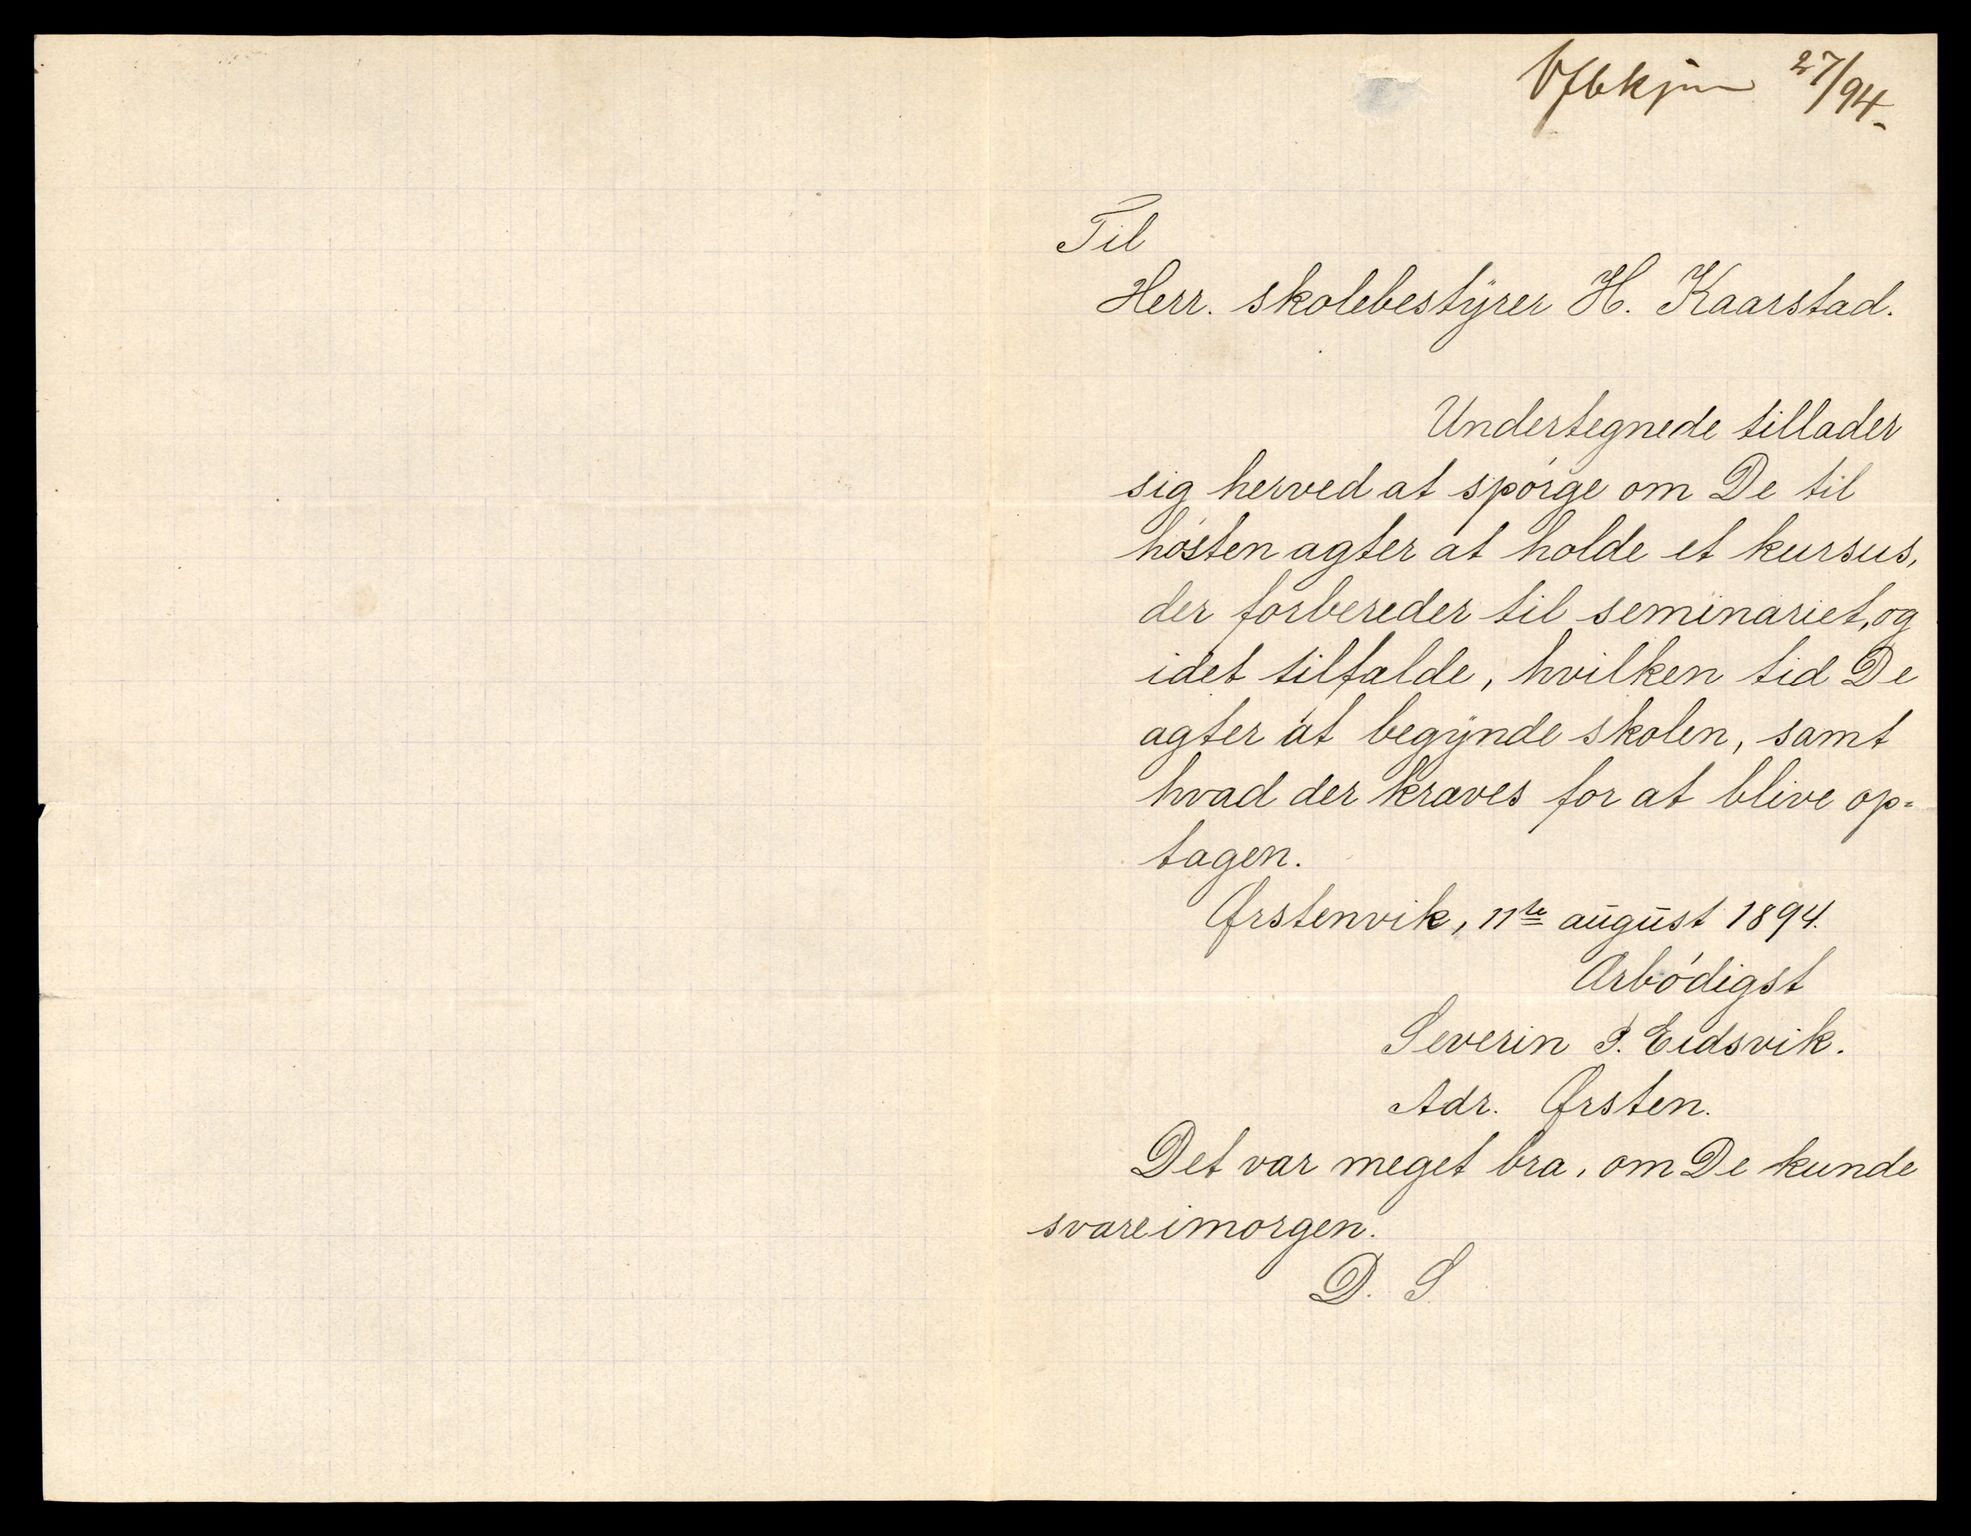 27/94.
Til
Herr. skolebestÿrer H. Kaarstad.
Undertegnede tillader
sig herved at spórge om De til
hósten agter at holde et kursus,
der forbereder til seminariet, og
idet tilfalde, hvilken tid De
agter at begÿnde skolen, samt
hvad der kræves for at blive op=
tagen.
Ørstenvik, 11te aūgūst 1894.
Ærbódigst
Severin P. Eidsvik.
Adr. Ørsten.
Det var meget bra, om De kunde
svare imorgen.
D. S